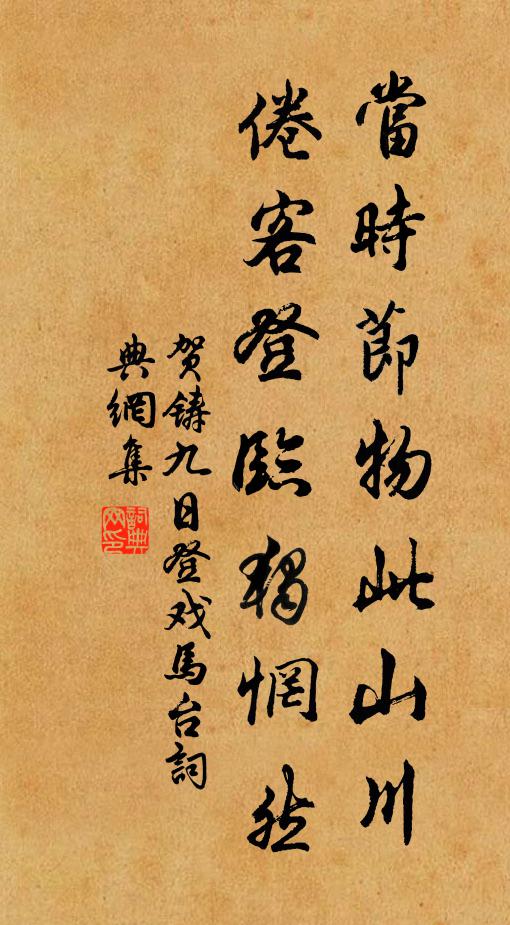 當時節物此山川
倦客登臨獨惘然
賀鑄九日登戏馬台詞
典網集
詞典
网印